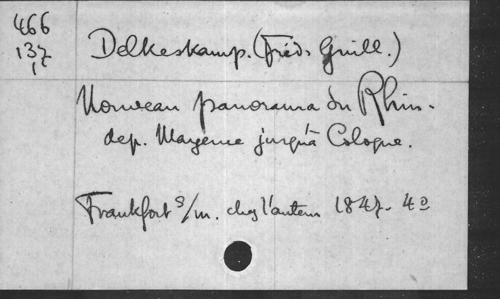 466
137
1c
Delkeskamp. (Fréd. Guill.)
Nouveau panorama du Rhin.
dep. Mayence jusqu'à Cologne.
Frankfort s/m. chez l'auteur 1847. 4º